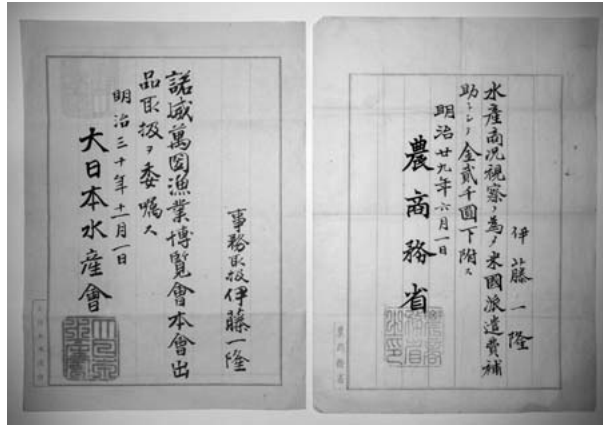 伊藤一隆
水產商況視察ノ為メ米國派遣費補
助トシテ金貳千圓下附ス
明治廿九年六月一日
農商務省
事務取扱伊藤一隆
諾威萬國漁業博覽會本會出
品取扱ヲ委囑ス
明治三十年十一月一日
大日本水產會